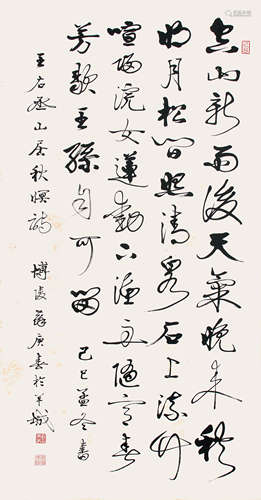 空山新雨後天氣晚来秋
明月松間照清泉石上流竹
喧歸浣女蓮動下漁舟隨意春
芳歇王孫自可留 己巳孟冬書
王右丞山居秋暝詩 博陵蘇庚春於羊城